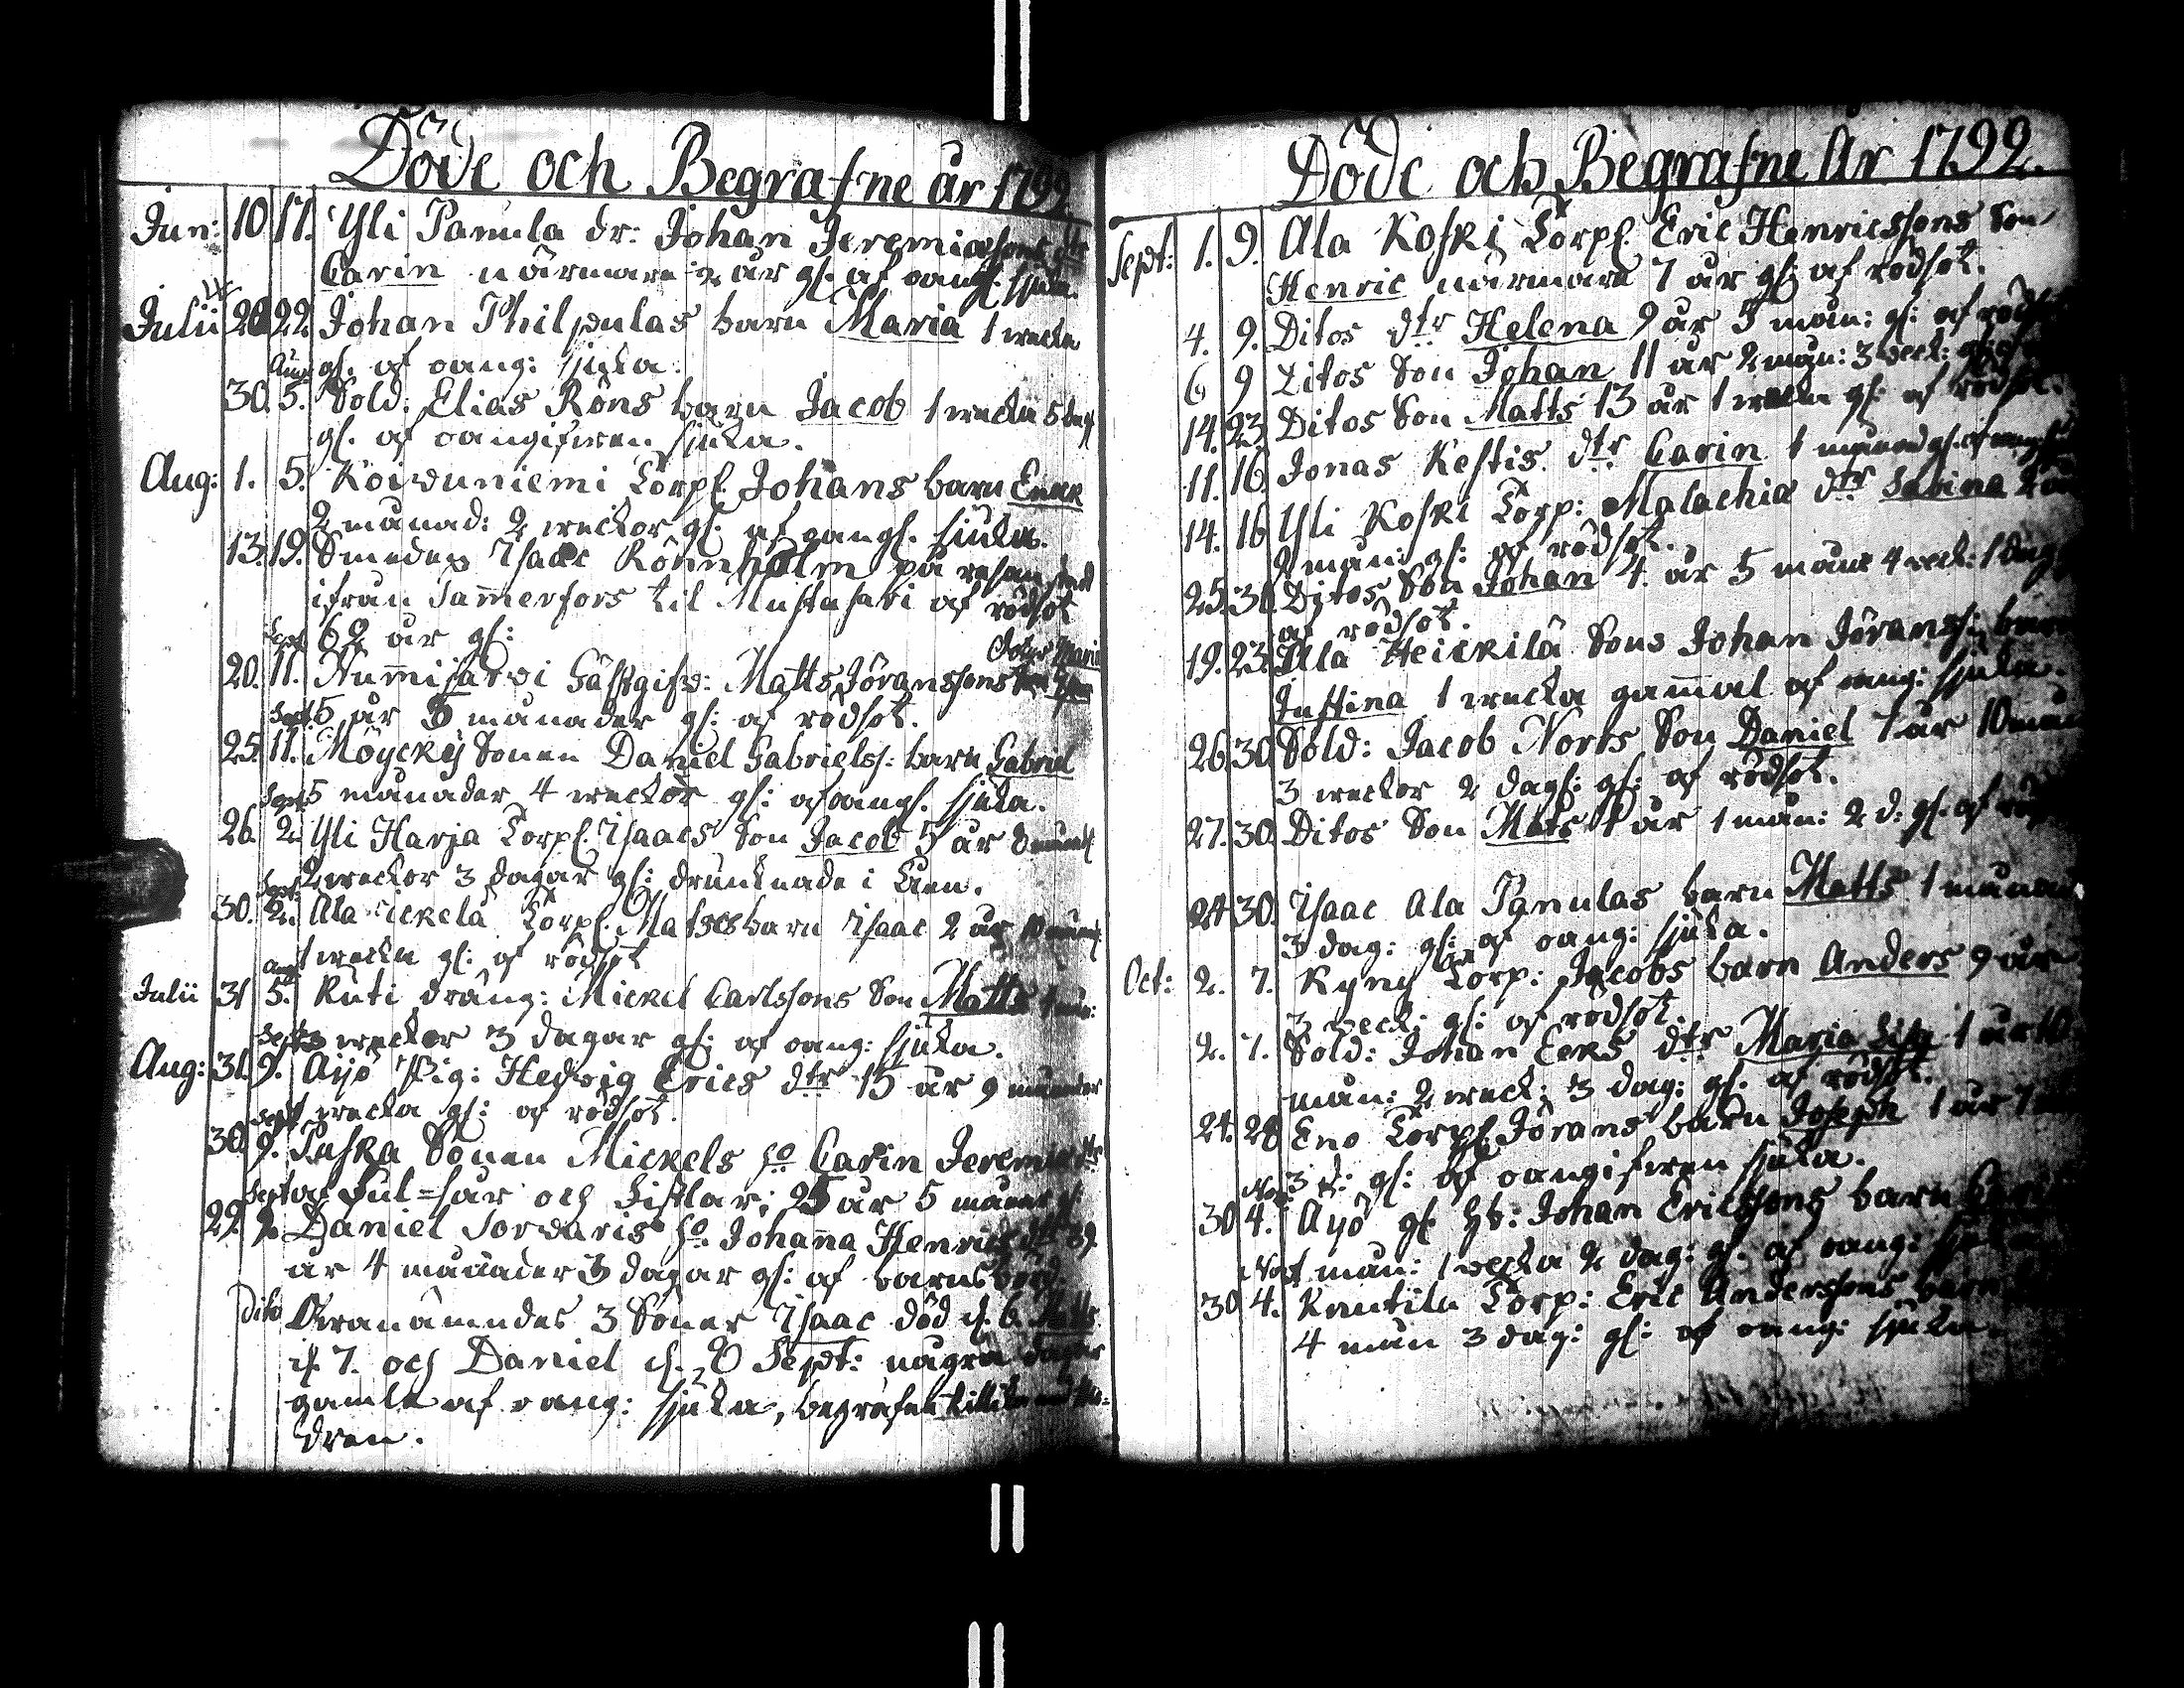 Döde och Begrafne år 1792
Jun: 10 17. Yli Panula dr: Johan Jeremiæsons dtr
Carin närmare 2 år gl: af oangf. sjuka.
Julii 20 22. Johan Philpulas barn Maria 1 wecka
gl. af oang: sjuka.
30. Aug 5. Sold: Elias Röns barn Jacob 1 wecka 5 dag
gl. af oangifwen sjuka.
Aug: 1. 5. Koivuniemi Torpf. Johans barn
2 månad: 2 weckor gl. af oangf. sjuka.
13. 19. Smeden Isaac Rönnholm på resan
ifrån Tam̄erfors til Mustasari af rödsot
62 år gl:
20. Sept 11. Num̄ijärvi Gästgifv: Matts Göranssons Maria
5 år 5 månader gl: af rödsot.
25. Sept 11. Möycky Sonen Daniel Gabrielss: barn Gabriel
5 månader 4 weckor gl: af oangf. sjuka.
26. Sept 2. Yli Harja Torpf. Isaacs Son Jacob 5 år 8 månad
2 weckor 3 dagar gl: drunknade i åen.
30. Sept 2. Ala Torpf. Mats barn Isaac 2 år 10 månad
1 wecka gl: af rödsot
Julii 31 Aug 5. Ruti dräng: Mickel Carlssons Son Matts 1 mån:
3 weckor 3 dagar gl: af oang: sjuka.
Aug: 31. Sept 9. Äijö Pig: Hedvig Erics dtr 15 år 9 månader
wecka gl: af rödsot.
30 Sept 9. Paska Sonen Mickels ho Carin Jeremiæ dtr
af ful-sår och fistlar; 25 år 5 månad
29. Sept 9. Daniel Sorvaris ho. Johan̄a Henrics dtr 39
år 4 månader 3 dagar gl: af barnsbörd.
Dito Ofvannämndes 3 Söner Isaac död d. 6 Matts
d. 7. och Daniel d. 8 Sept: några dagar
gamle af oang: sjuka, begrafen tillika med
dren.
Döde och Begrafne År 1792.
Sept: 1. 9. Ala Koski Torpf. Eric Henricssons Son
Henric närmare 7 år gl: af rödsot.
4. 9. Ditos dtr Helena 9 år 5 mån: gl: af rödsot
6 9 Ditos Son Johan 11 år 2 mån: 3 weck:
14. 23 Ditos Son Matts 13 år 1 wecka gl: af rödsot.
11. 16. Jonas Kestis dtr Carin 1 månad gl. af oang
14. 16 Yli Koski Torp: Malachiæ dtr Sabina 2 år
2 mån: gl: af rödsot.
25. 30. Ditos Son Johan 4 år 5 mån 4 weck: 1 dag
af rödsot.
19. 23. Illa Heickilä Sons Johan Jöranss: barn
Justina 1 wecka gam̄al af oang: sjuka.
26. 30 Sold: Jacob Norrs Son Daniel 7 år 10 mån
3 weckor 2 dag: gl: af rödsot.
27. 30. Ditos Son Mats år 1 mån: 2 d: gl. af
24 30. Isaac Ala Panulas barn Matts 1 månad
3 dag: gl: af oang: sjuka.
Oct: 2. 7. Kyny Torp: Jacobs barn Anders 9 år
3 weck: gl: af rödsot.
2. 7. Sold: Johan Eeks dtr Maria Lisa 1 år 10
mån: 2 weck: 3 dag: gl. af rödsot.
24. 28 Eno Torpf. Jörans barn Joseph 1 år 7
3 d: gl: af oangifwen sjuka.
30 Nov 4. Äyö gl. Hb: Johan Ericssons barn
mån: 1 wecka 2 dag: gl. af oang:
30 Nov 4. Knutila Torp: Eric Anderssons barn
4 mån 3 dag: gl: af oang: sjuka.